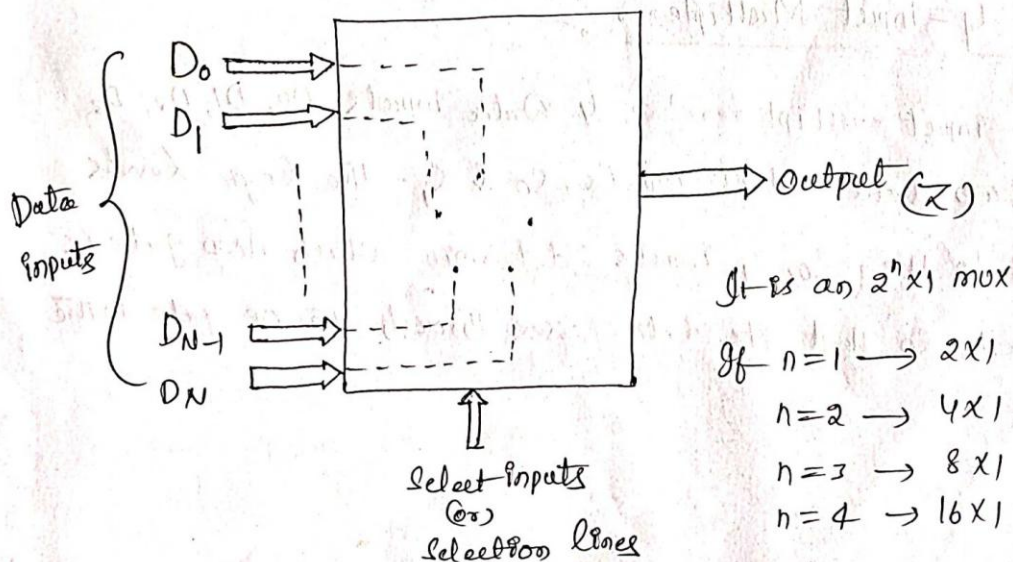 D₀
D₁
Data
inputs
D_N-1
D_N
Output (Z)
It is an 2ⁿx1 mux
If n=1 → 2x1
n=2 → 4x1
n=3 → 8x1
n=4 → 16x1
Select inputs
(or)
Selection lines